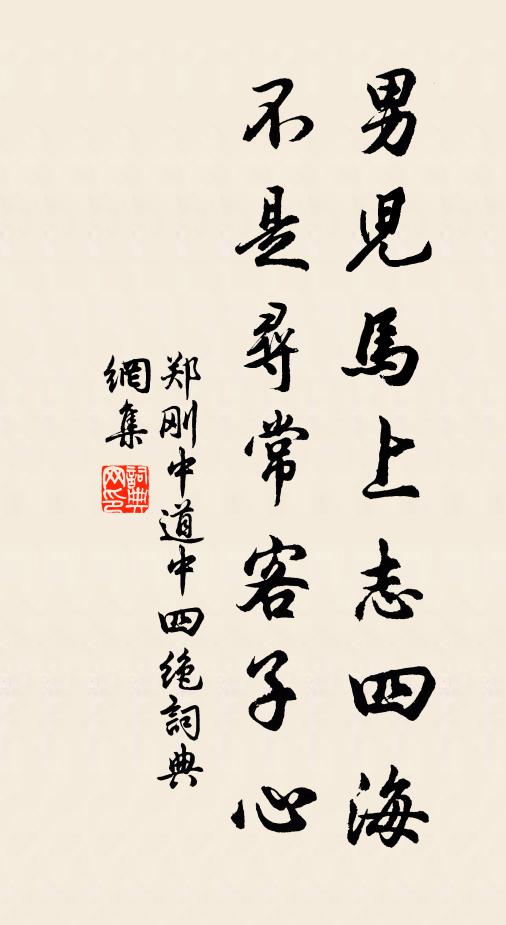 男兒馬上志四海
不是尋常客子心
郑刚中道中四绝詞典
網集
詞典
网印